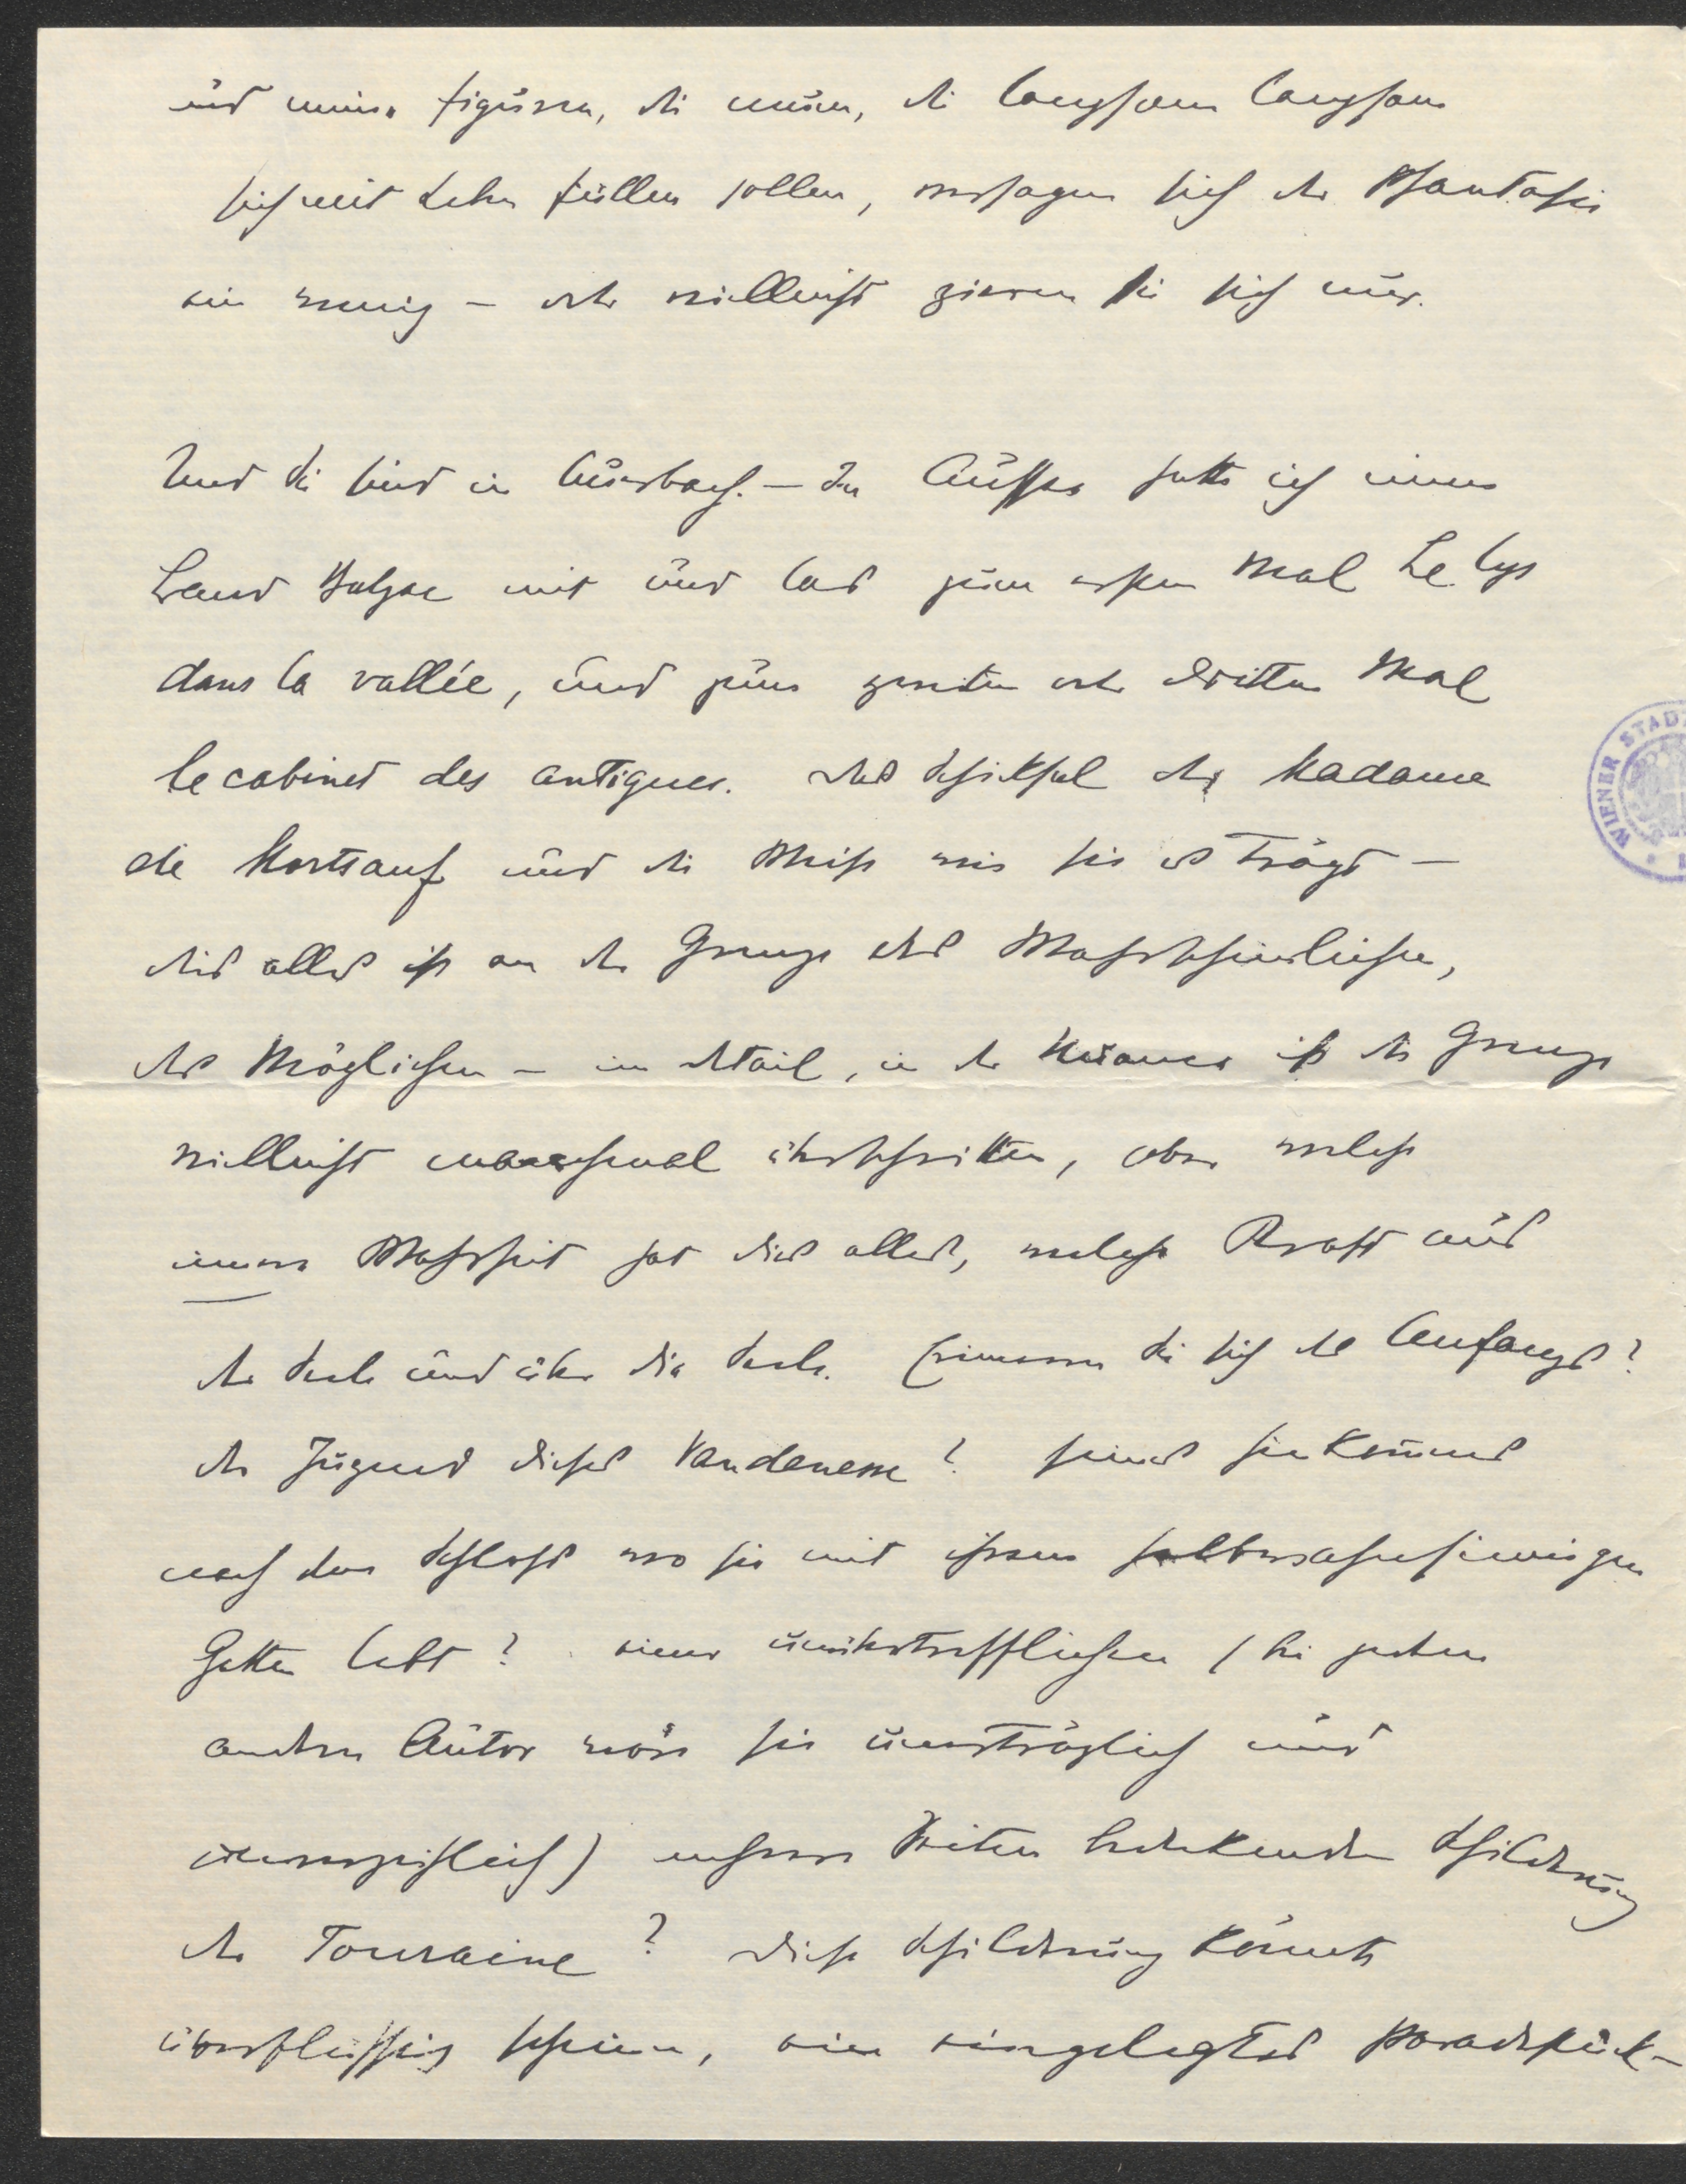 und meine Figuren, die neuen, die langsam langsam
sich mit Leben füllen sollen, versagen sich der Phantasie
ein wenig – oder vielleicht zieren sie sich nur.
Und Sie sind in Auerbach. – In Aussee hatte ich einen
Band Balzac mit und las zum ersten Mal Le lys
dans la vallée, und zum zweiten oder dritten Mal
le cabinet des antiques. Das Schicksal der Madame
de Mortsauf und die Weise wie sie es trägt –
dies alles ist an der Grenze des Wahrscheinlichen,
des Möglichen – im Detail, in der Nuance ist die Grenze
vielleicht manchmal überschritten, aber welche
innere Wahrheit hat dies alles, welche Kraft aus
der Seele und über die Seele. Erinnern Sie sich des Anfangs?
der Jugend dieses Vandenesse? seines Hinkommens
nach dem Schloss wo sie mit ihrem halbwahnsinnigen
Gatten lebt? einer unübertrefflichen (bei jedem
andern Autor wäre sie unerträglich und
unverzeihlich) mehrere Seiten bedeckenden Schilderung
der Touraine? Diese Schilderung könnte
überflüssig scheinen, ein eingelegtes Paradestück –
WIENER STAD